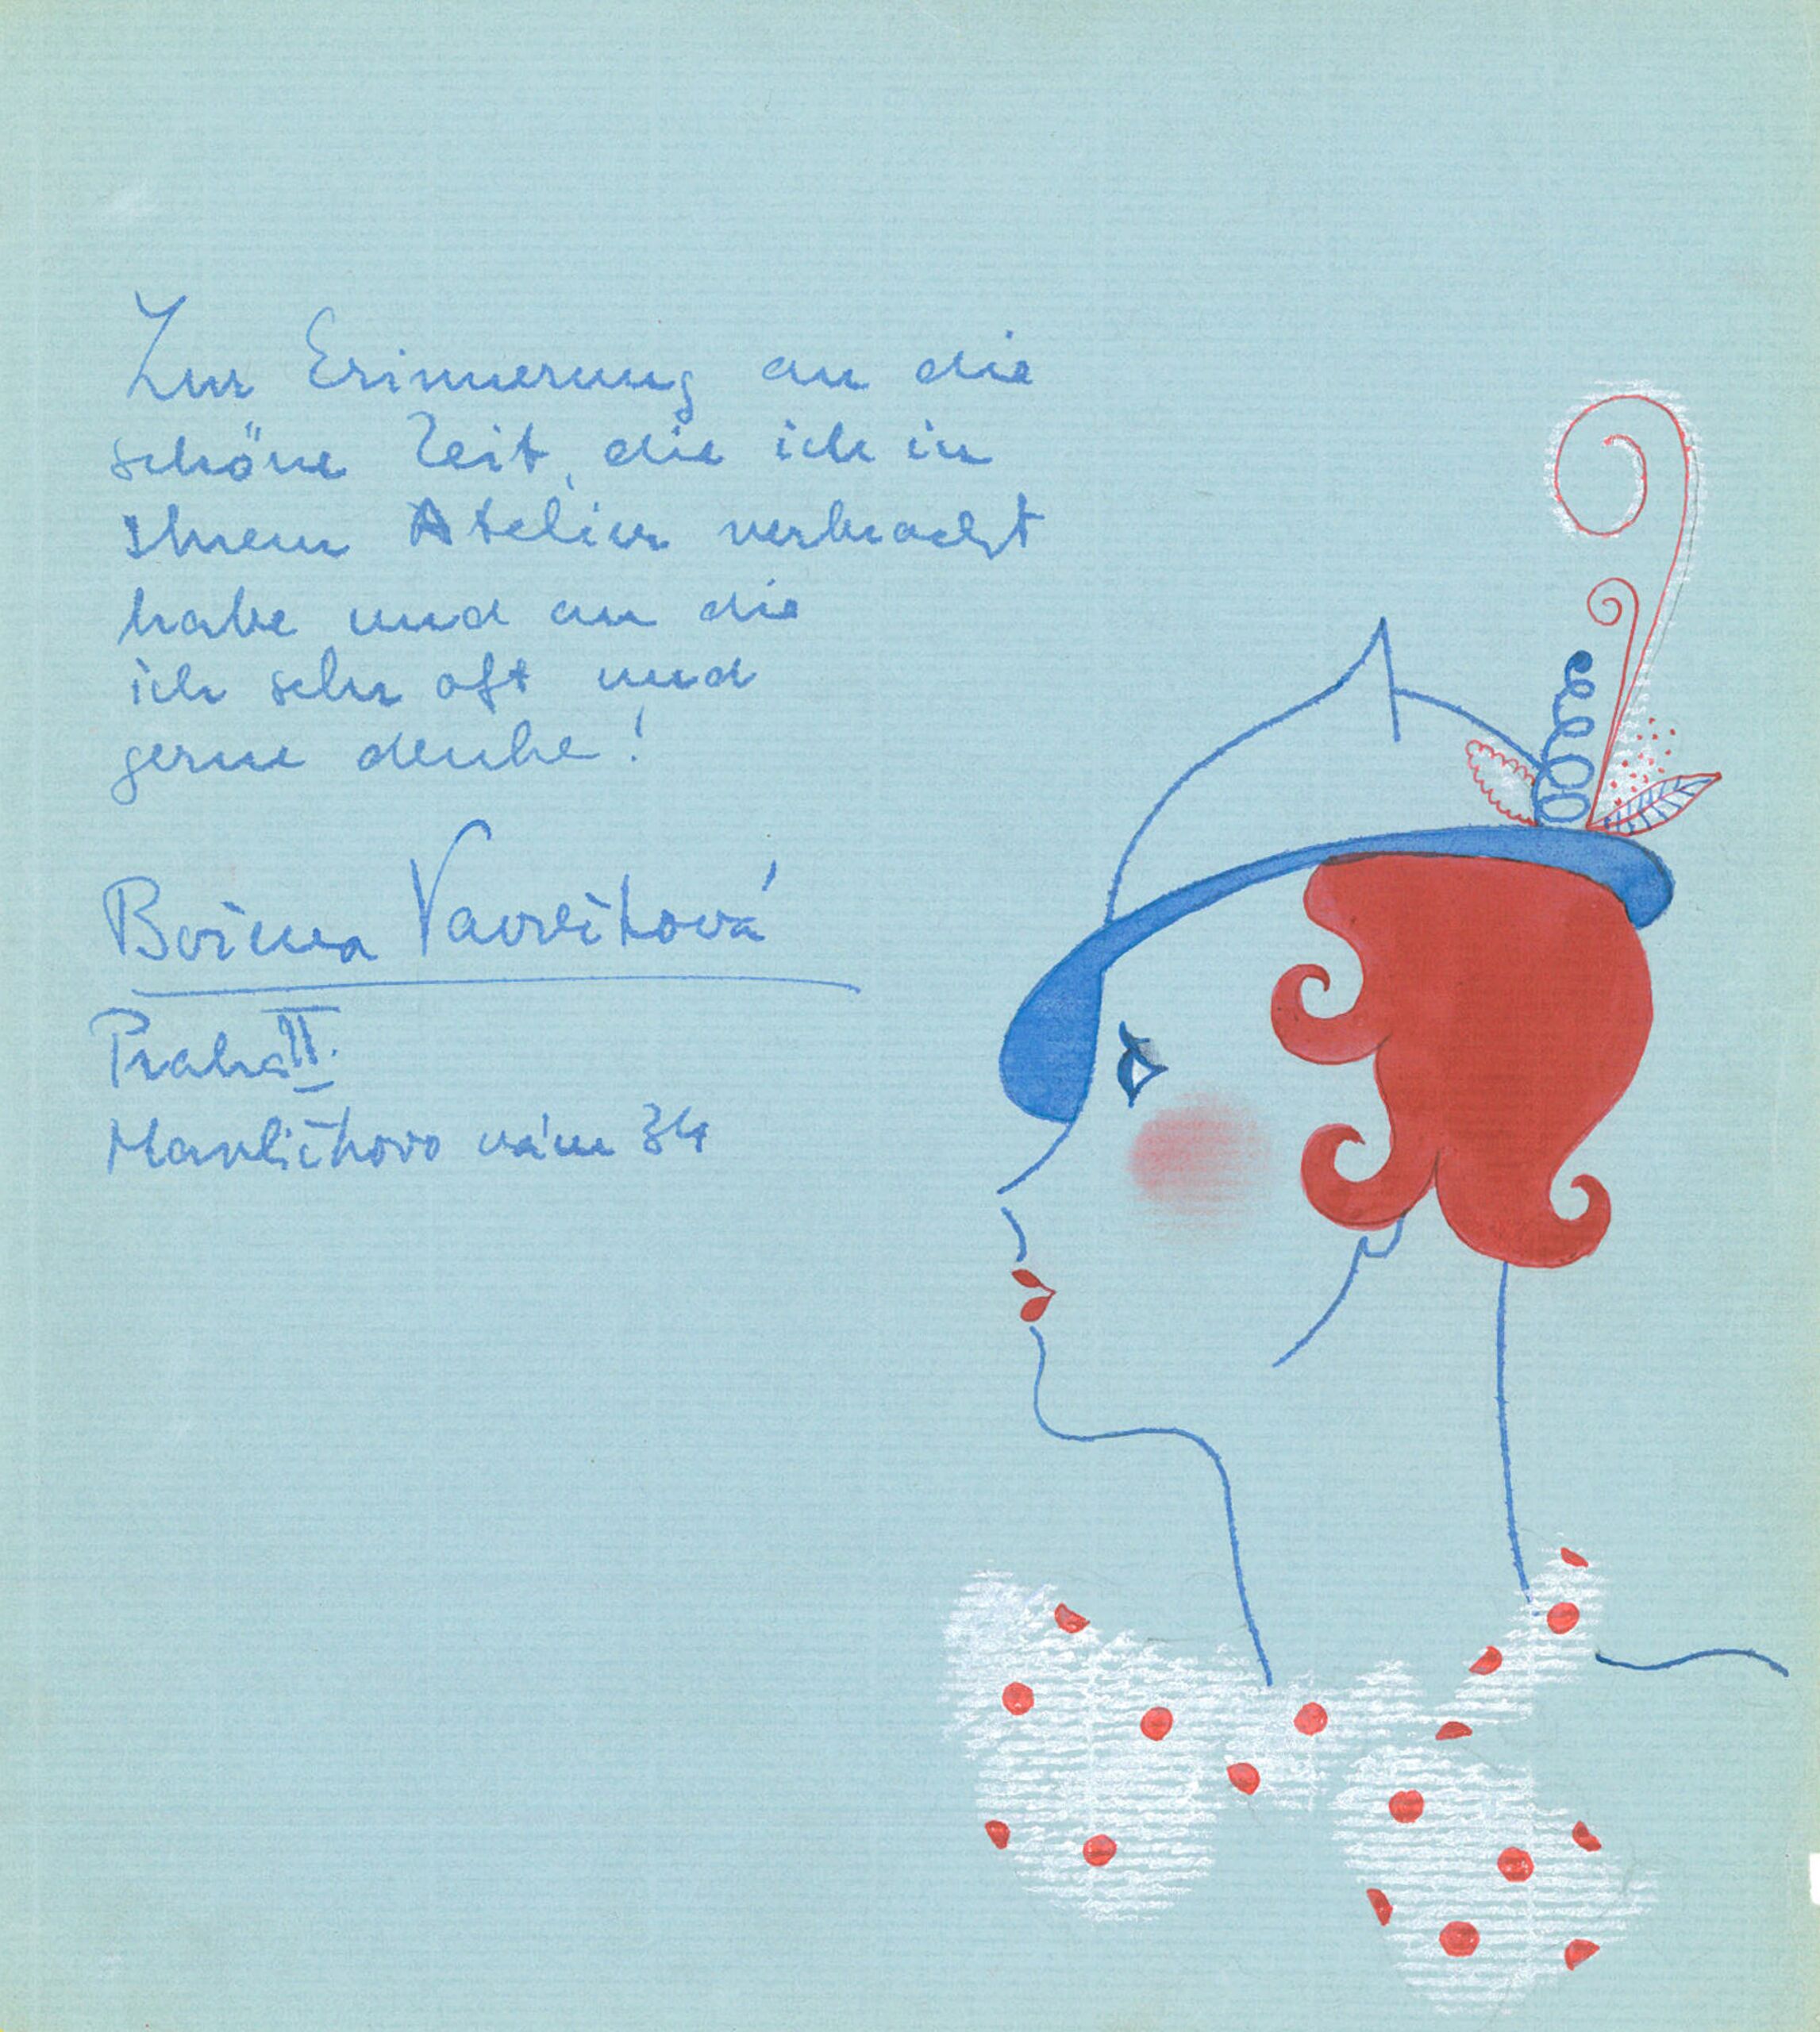 Zur Erinnerung an die
schöne Zeit, die ich in
Ihrem Atelier verbracht
habe und an die
ich sehr oft und
gerne denke!
Vavrečková
Praha II.
Havlíčkovo nám 34